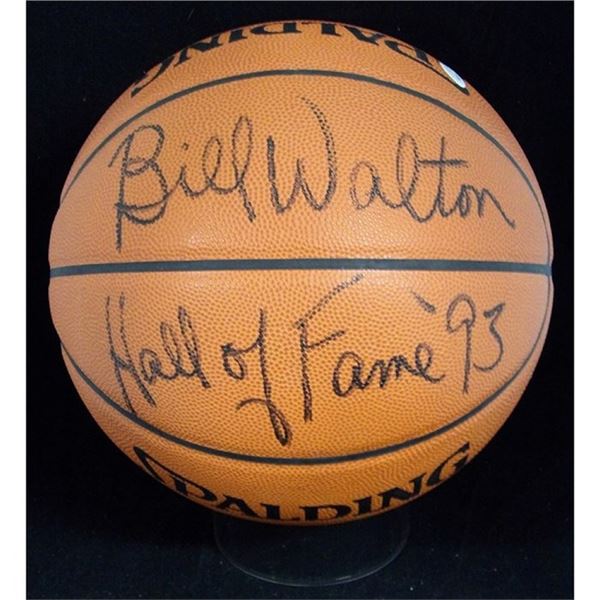 SPALDING
Bill Walton
Hall of Fame '93
SPALDING